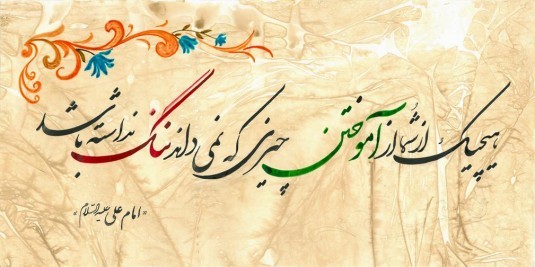 هیچیک از شما از آموختن چیزی که نمی داند ننگ نداشته باشد
«امام علی علیه السلام»